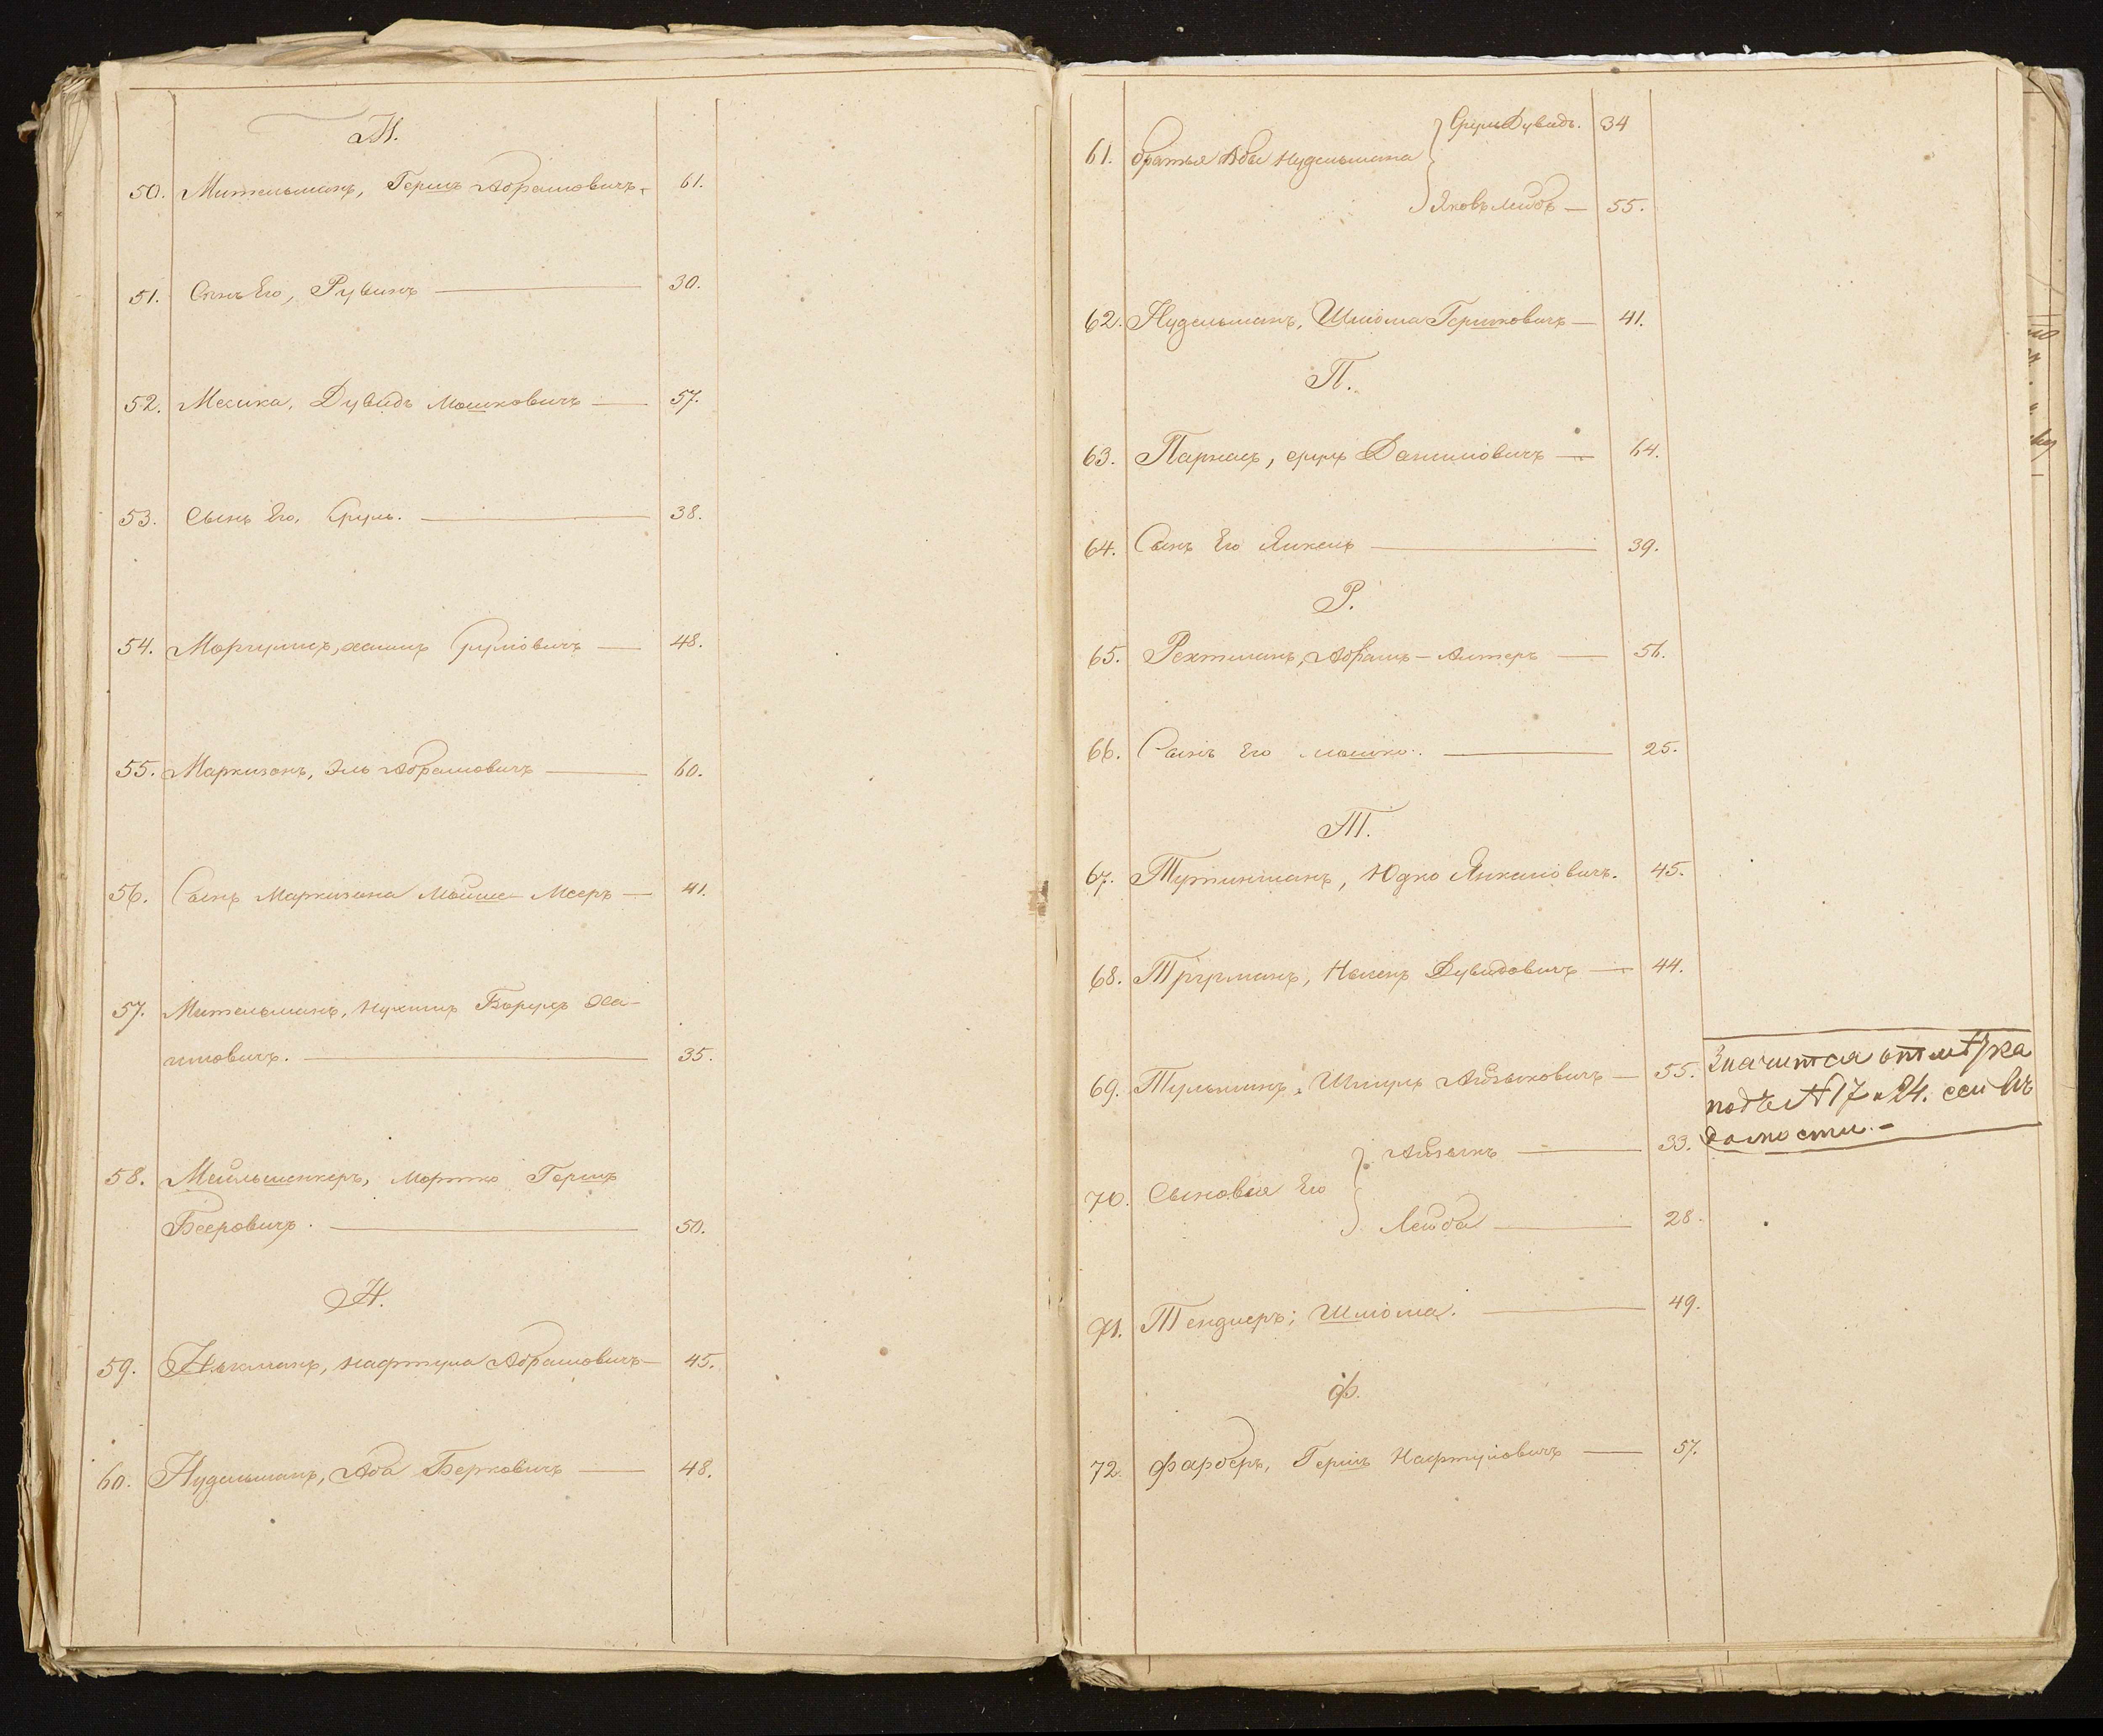 М.
50. Мительманъ, Гершъ Абрамовичъ 61.
51. Сынъ Его, Рувинъ — 30.
52. Месика, Дувидъ Мошковичъ — 57.
53. Сынъ Его, Сруль. — 38.
54. Моргулисъ, Хаимъ Срулiовичъ — 48.
55. Маркизанъ, Эль Абрамовичъ — 60.
56. Сынъ Маркизана Мойше-Мееръ — 41.
57. Мительманъ, Нухимъ Борухъ Ха-
имовичъ. — 35.
58. Мейльшенкеръ, Мортко Гершъ
Бееровичъ. — 50.
Н.
59. Нафтула Абрамовичъ — 45.
60. Нудельманъ, Аба Берковичъ — 48.
61. братья Абы Нудельмана } Сруль Дувидъ. 34
Яковъ Лейбъ — 55.
62. Нудельманъ, Шлiома Гершковичъ — 41.
П.
63. Парнасъ, Сруль Данилiовичъ — 64.
64. Сынъ Его Янкель — 39.
Р.
65. Рехтманъ, Абрамъ-Алтеръ — 56.
66. Сынъ Его Мошко. — 25.
Т.
67. Юдко Янкелiовичъ. 45.
68. Дувидовичъ — 44.
69. Тульчинъ, Шмуль Айзыковичъ — 55.
Значится отмѣтка
подъ № 17 и 24. сей вѣ
домости. -
70. Сыновья Его } Айзыкъ — 33.
Лейба — 28.
71. Тендлеръ; Шлiома. — 49.
Ф.
72. Фарберъ, Гершъ Нафтулiовичъ — 57.